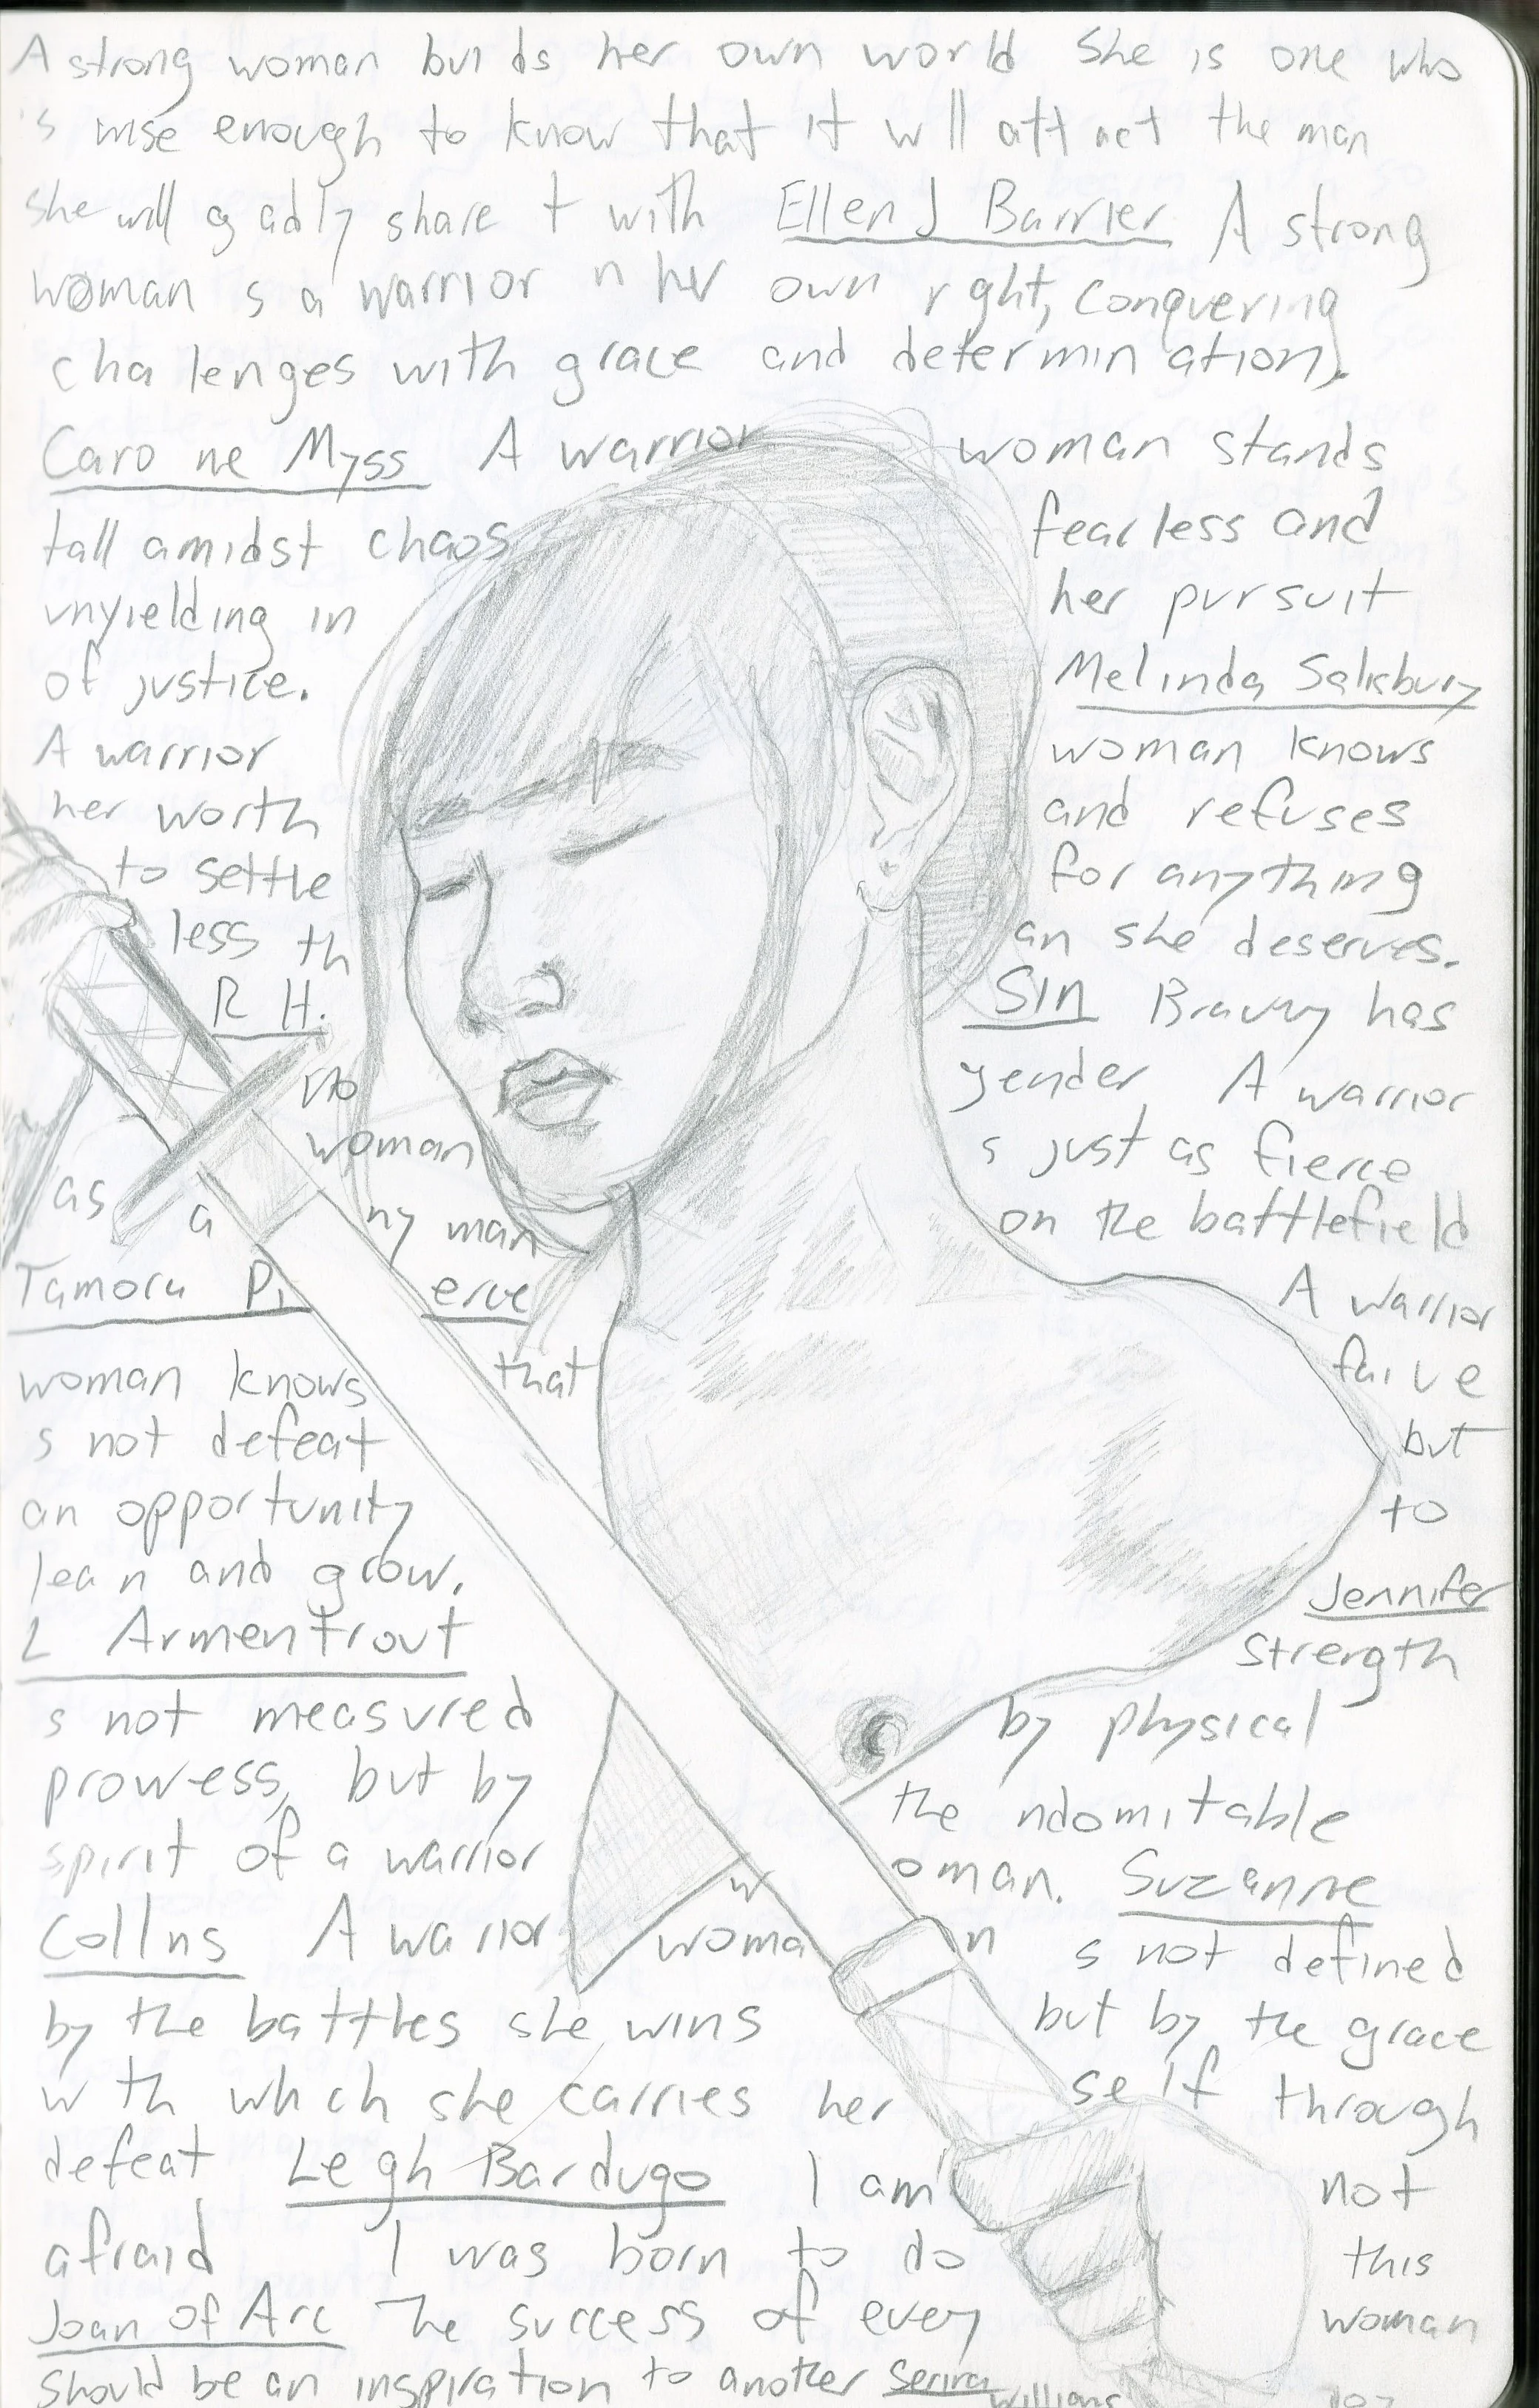 A strong woman bui ds her own world She is one who
's wise enough to know that it w ll att act the man
she will g adly share t with Ellen J Barrier A strong
woman s a warrior n her own r ght, conquering
cha lenges with grace and determin ation.
Caro ne Myss A warrior woman stands
tall amidst chaos fearless and
unyielding in her pursuit
of justice. Melinda Salisbury
A warrior woman knows
her worth and refuses
to settle for anything
less th an she deserves.
R H. Sin Bravery has
no gender A warrior
woman s just as fierce
as a ny man on the battlefield
Tamora Pi erce A warrior
woman knows that fai u e
s not defeat but
an opportunity to
lea n and grow. Jennifer
L Armentrout Strength
s not measured by physical
prowess, but by the ndomitable
spirit of a warrior w oman. Suzanne
Coll ns A wa rior woma n s not defined
by the battles she wins but by the grace
w th wh ch she carries her se lf through
defeat Le gh Bardugo I am not
afraid I was born to do this
Joan of Arc The success of every woman
should be an inspiration to another Serena
Williams